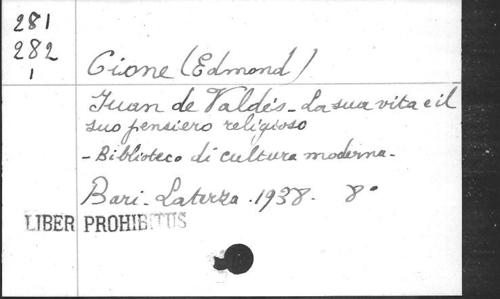 281
282
1
Cione (Edmond)
Juan de Valdés - La sua vita e il
suo pensiero religioso
- Biblioteca di cultura moderna -
Bari - Laterza . 1938 . 8°
LIBER PROHIBITUS